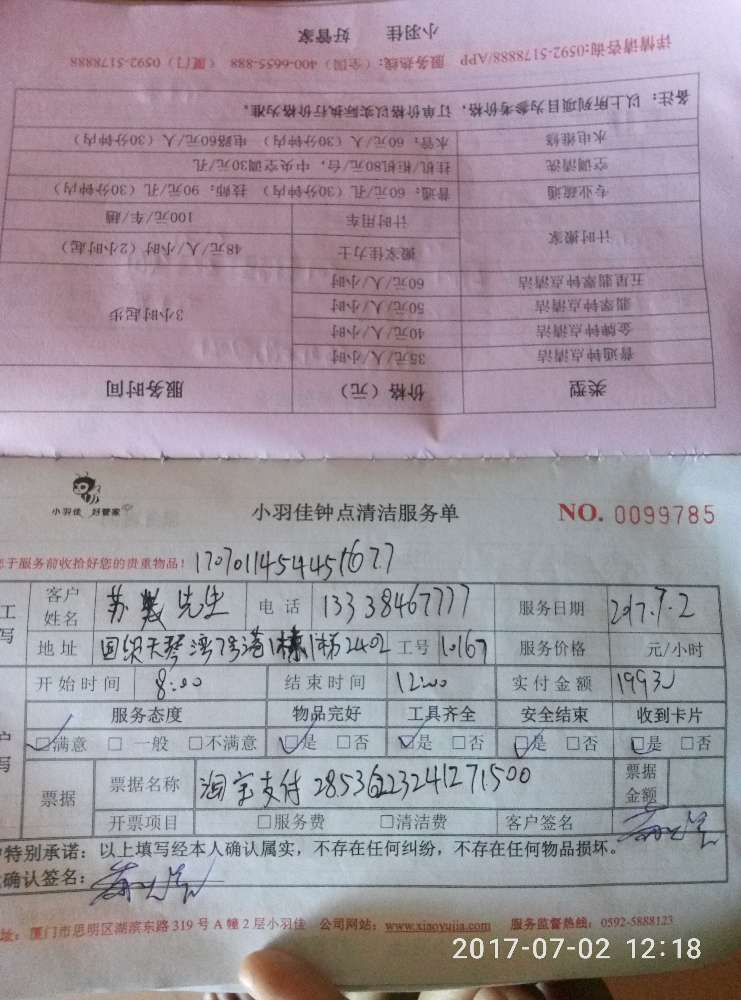 小羽佳 好管家
详情请咨询:0592-5178888/APP 服务热线:(全国)400-6655-888 (厦门)0592-5178888
备注:以上所列项目为参考价格,订单价格以实际执行价格为准。
水电维修 水管:60元/人(30分钟内) 电路60元/人(30分钟内)
空调清洗 挂机/柜机80元/台,中央空调30元/孔
专业疏通 普通:60元/孔(30分钟内) 技师:90元/孔(30分钟内)
计时搬家 计时用车 100元/车/趟
搬家佳力士 48元/人/小时(2小时起)
五星翡翠钟点清洁 60元/人/小时
翡翠钟点清洁 50元/人/小时
金牌钟点清洁 40元/人/小时
普通钟点清洁 35元/人/小时
3小时起步
类型 价格(元) 服务时间
小羽佳 好管家
小羽佳钟点清洁服务单 NO. 0099785
于服务前收拾好您的贵重物品!
客户姓名 苏 先生 电话 13338467777 服务日期 2017.7.2
地址 国贸天琴湾 2402 工号 10167 服务价格 元/小时
开始时间 8:00 结束时间 12:00 实付金额
服务态度 物品完好 工具齐全 安全结束 收到卡片
□满意 □一般 □不满意 □是 □否 □是 □否 □是 □否 □是 □否
票据 票据名称 淘宝支付 票据金额
开票项目 □服务费 □清洁费 客户签名
特别承诺:以上填写经本人确认属实,不存在任何纠纷,不存在任何物品损坏。
确认签名:
址:厦门市思明区湖滨东路319号A幢2层小羽佳 公司网站:www.xiaoyujia.com 服务监督热线:0592-5888123
2017-07-02 12:18